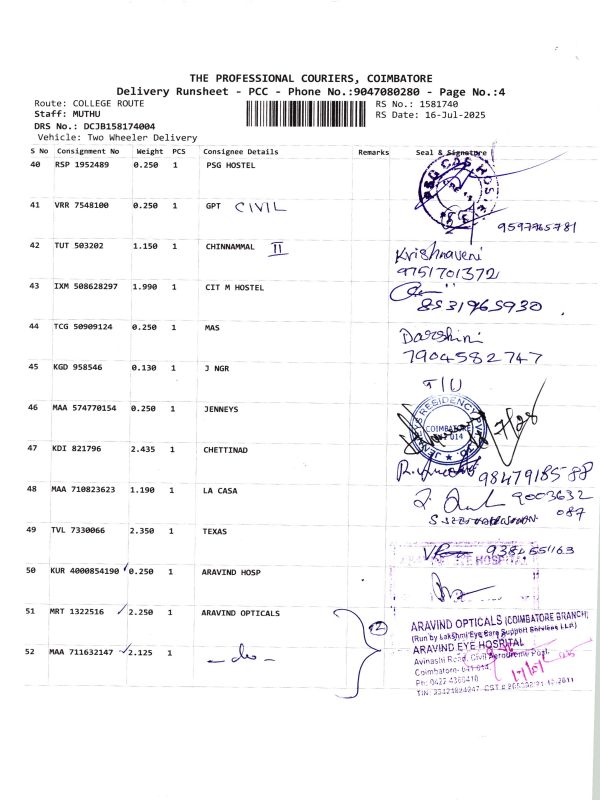 THE PROFESSIONAL COURIERS, COIMBATORE
Delivery Runsheet - PCC - Phone No.:9047080280 - Page No.:4
Route: COLLEGE ROUTE RS No.: 1581740
Staff: MUTHU RS Date: 16-Jul-2025
DRS No.: DCJB158174004
Vehicle: Two Wheeler Delivery
S No Consignment No Weight PCS Consignee Details Remarks Seal & Signature
40 RSP 1952489 0.250 1 PSG HOSTEL
PSG CAS HOSTEL
41 VRR 7548100 0.250 1 GPT CIVIL
9597965781
42 TUT 503202 1.150 1 CHINNAMMAL II Krishnaveni
9751701372
43 IXM 508628297 1.990 1 CIT M HOSTEL
8531965930
44 TCG 50909124 0.250 1 MAS Darshini
7904582747
45 KGD 958546 0.130 1 J NGR
46 MAA 574770154 0.250 1 JENNEYS
JENNEYS RESIDENCY PVT. LTD.
COIMBATORE
641 014
47 KDI 821796 2.435 1 CHETTINAD
9847918588
48 MAA 710823623 1.190 1 LA CASA 9003632
087
49 TVL 7330066 2.350 1 TEXAS
50 KUR 4000854190 0.250 1 ARAVIND HOSP
EYE HOSPITAL
51 MRT 1322516 2.250 1 ARAVIND OPTICALS
52 MAA 711632147 2.125 1 -do-
ARAVIND OPTICALS (COIMBATORE BRANCH)
(Run by Lakshmi Eye Care Support Services LLP)
ARAVIND EYE HOSPITAL
Avinashi Road, Civil Aerodrome Post,
Coimbatore- 641 014.
Ph: 0427 4360410